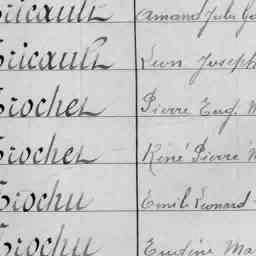 Tricault Amand Jules
Tricault Léon Joseph
Trochet Pierre Eug.
Trochet René Pierre
Trochu Emile Léonard
Trochu Eugène Ma